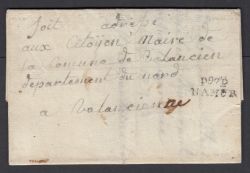 soit adresé
aux Citoyen Maire de
la Comune de Valancien
departement du nord
a Valancienne
P97P
NAMUR